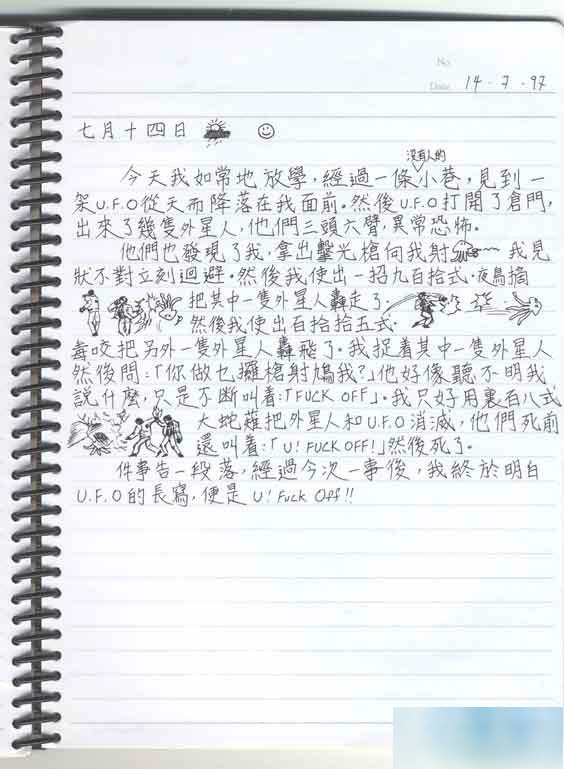 No.
Date 14 . 7 . 97
七月十四日
今天我如常地放學，經過一條沒有人的小巷，見到一
架U.F.O從天而降落在我面前。然後U.F.O打開了倉門，
出來了幾隻外星人，他們三頭六臂，異常恐怖。
他們也發現了我，拿出擊光槍向我射 我見
狀不對立刻迴避。然後我使出一招九百拾式·夜鳥摘
把其中一隻外星人轟走了·
然後我使出百拾拾五式·
毒咬把另外一隻外星人轟飛了。我捉着其中一隻外星人
然後問：「你做乜攞槍射鳩我？」他好像聽不明我
說什麼，只是不斷叫着：「FUCK OFF」。我只好用裏百八式
大蛇薙把外星人和U.F.O消滅，他們死前
還叫着：「U! FUCK OFF!」然後死了。
件事告一段落，經過今次一事後，我終於明白
U.F.O的長寫，便是U! Fuck Off!!